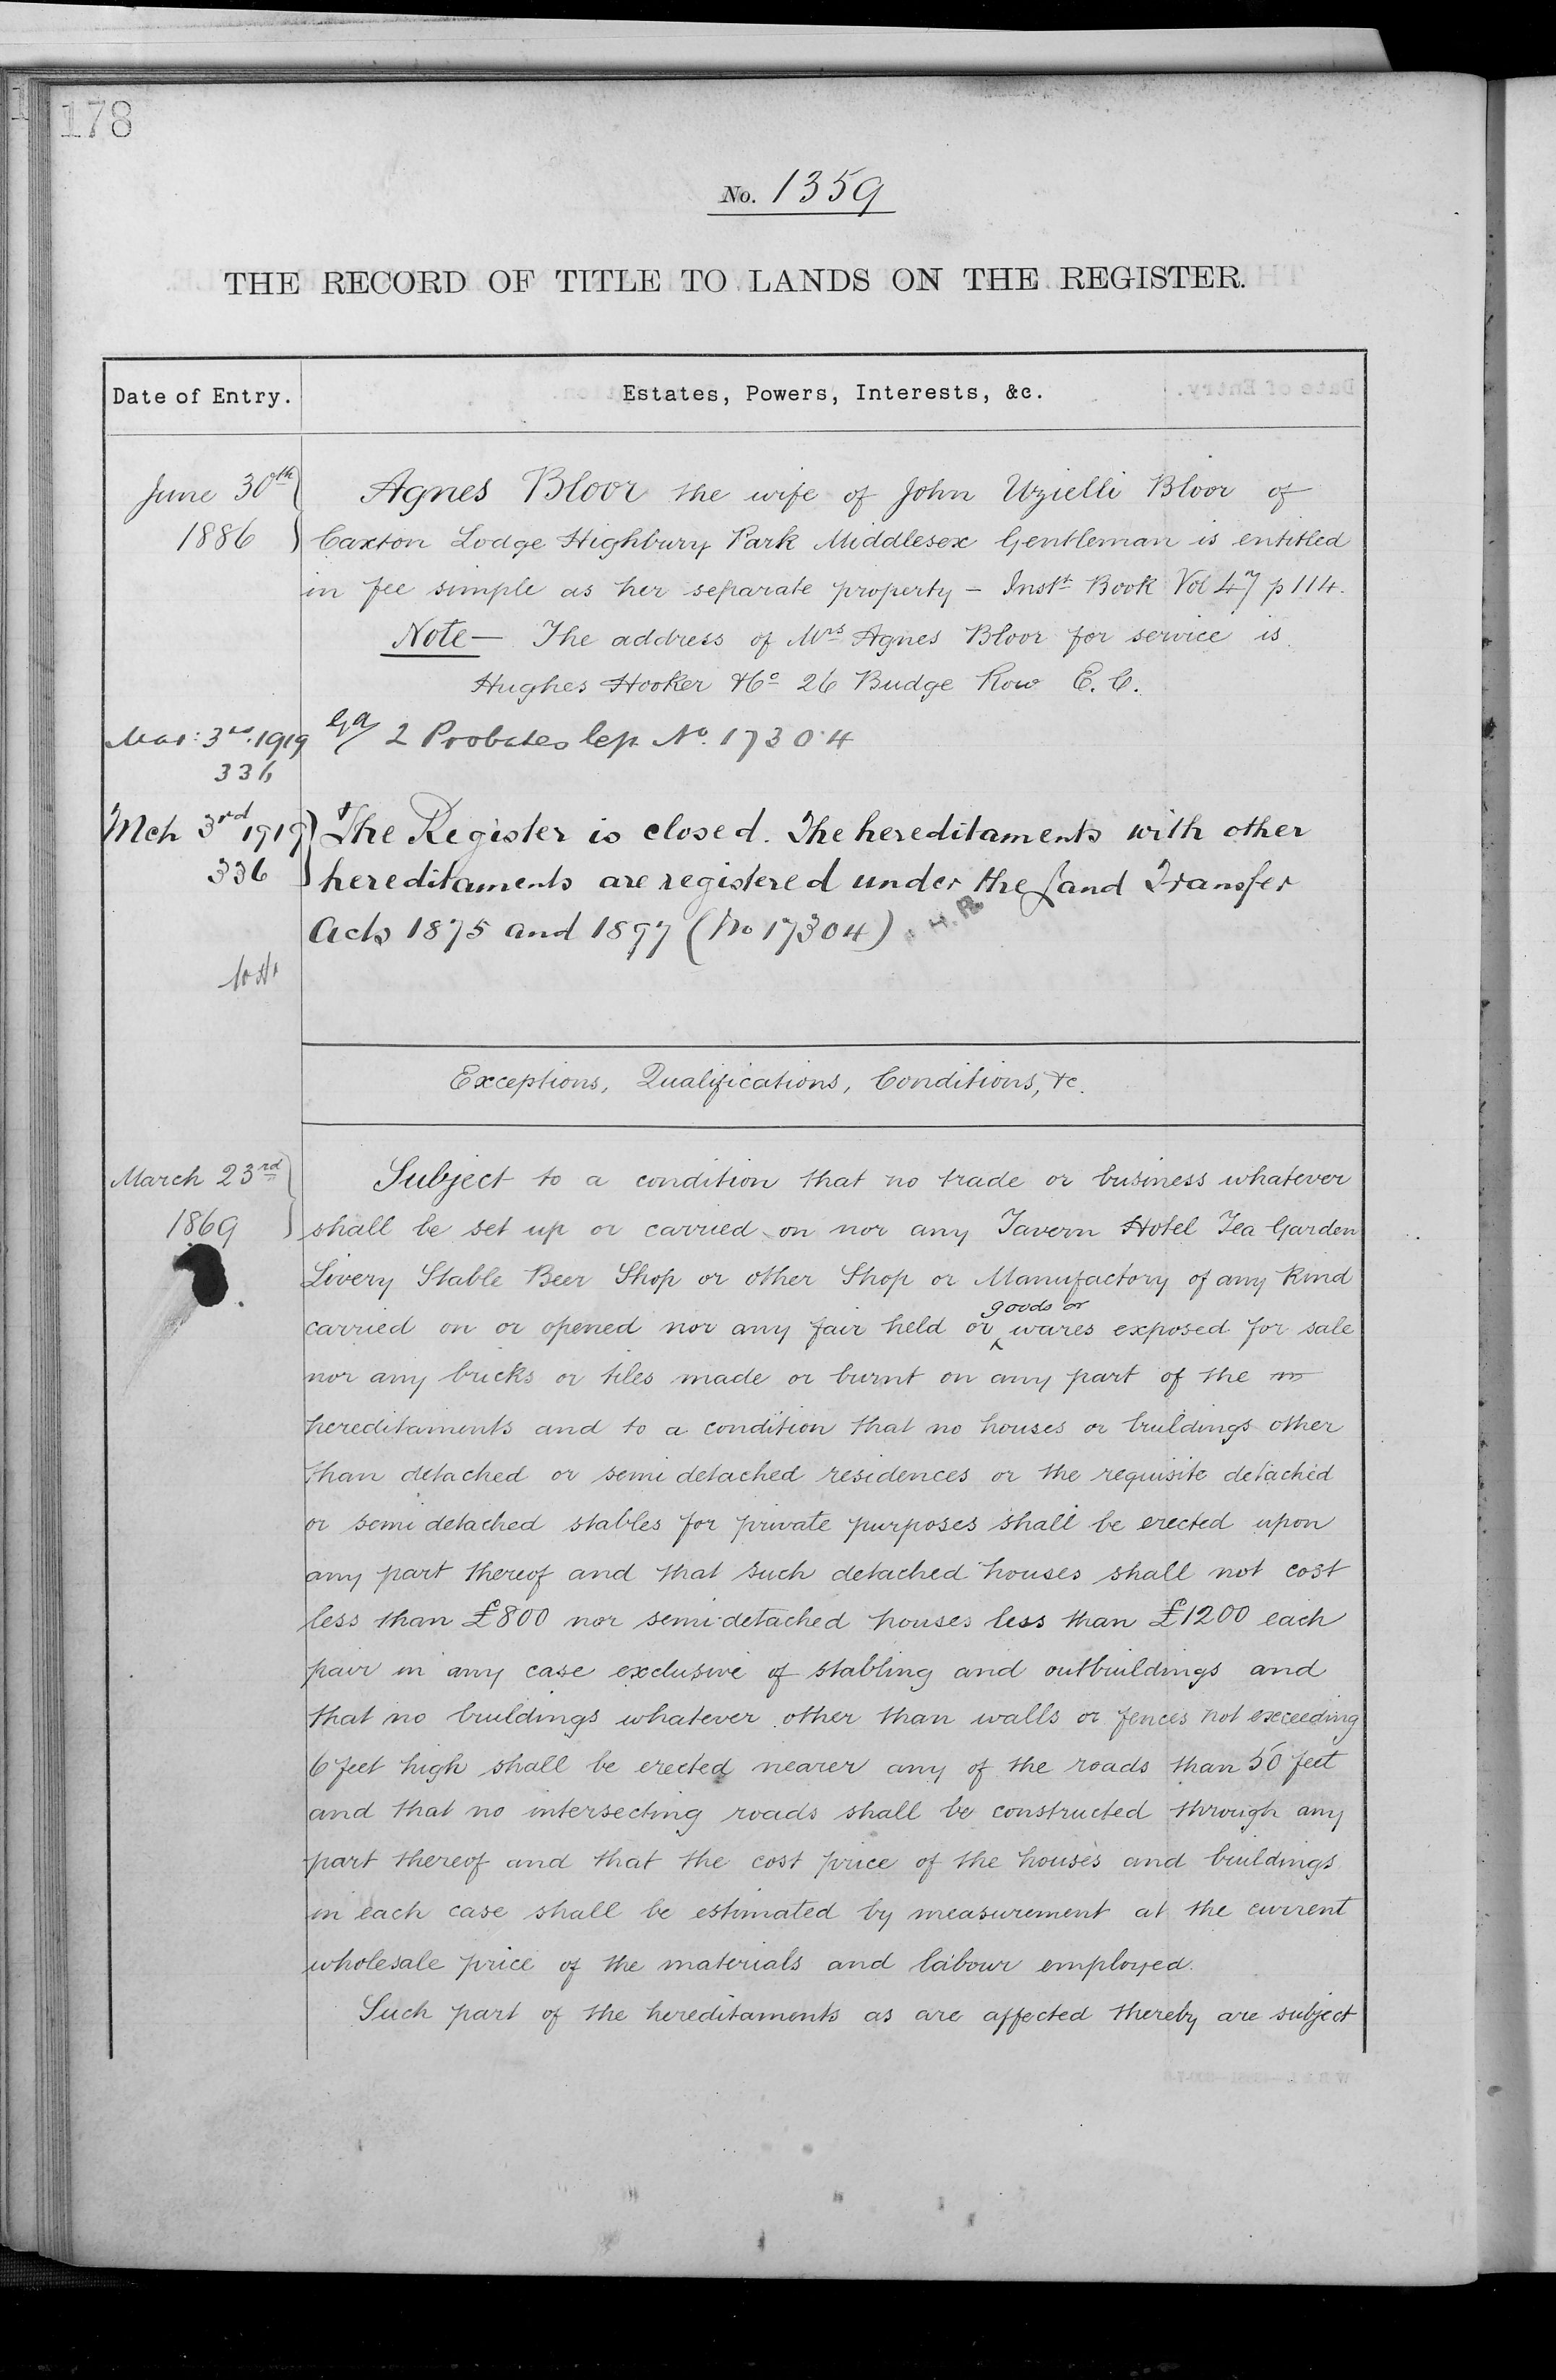 178
No. 1359
THE RECORD OF TITLE TO LANDS ON THE REGISTER.
Date of Entry.
Estates, Powers, Interests, &c.
June 30th 1886
Agnes Bloor the wife of John Uzielli Bloor of
Caxton Lodge Highbury Park Middlesex Gentleman is entitled
in fee simple as her separate property – Instt Book Vol 47 p 114.
Note – The address of Mrs Agnes Bloor for service is
Hughes Hooker & Co 26 Budge Row E.C.
Mar: 3rd 1919
336
2 Probates No. 17304
Mch 3rd 1919
336
The Register is closed. The hereditaments with other
hereditaments are registered under the Land Transfer
Acts 1875 and 1897 (No 17304). H.R.
Exceptions, Qualifications, Conditions, &c.
March 23rd 1869
Subject to a condition that no trade or business whatever
shall be set up or carried on nor any Tavern Hotel Tea Garden
Livery Stable Beer Shop or other Shop or Manufactory of any kind
carried on or opened nor any fair held or goods or wares exposed for sale
nor any bricks or tiles made or burnt on any part of the
hereditaments and to a condition that no houses or buildings other
than detached or semi detached residences or the requisite detached
or semi detached stables for private purposes shall be erected upon
any part thereof and that such detached houses shall not cost
less than £800 nor semi-detached houses less than £1200 each
pair in any case exclusive of stabling and outbuildings and
that no buildings whatever other than walls or fences not exceeding
6 feet high shall be erected nearer any of the roads than 50 feet
and that no intersecting roads shall be constructed through any
part thereof and that the cost price of the houses and buildings
in each case shall be estimated by measurement at the current
wholesale price of the materials and labour employed.
Such part of the hereditaments as are affected thereby are subject